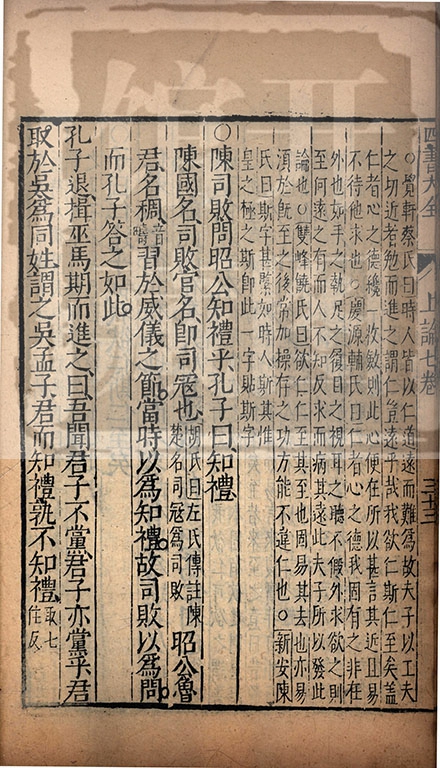 四書大全
上論七卷
三十三
○覺軒蔡氏曰時人皆以仁道遠而難爲故夫子以工夫
之切近者勉而進之謂仁豈遠乎哉我欲仁斯仁至矣蓋
仁者心之德纔一收斂則此心便在所以甚言其近且易
不待他求也○慶源輔氏曰仁者心之德我固有之非在
外也如手之執足之履目之視耳之聽不假外求欲之則
至何遠之有而人不知反求而病其遠此夫子所以發此
論也○雙峰饒氏曰欲仁仁至其至也固易其去也亦易
須於旣至之後常加操存之功方能不違仁也○新安陳
氏曰斯字甚緊如時人斯其惟
皇之極之斯即此一字貼斯字
○陳司敗問昭公知禮乎孔子曰知禮
陳國名司敗官名即司寇也胡氏曰左氏傳註陳
楚名司寇爲司敗昭公魯
君名稠音
疇習於威儀之節當時以爲知禮故司敗以爲問
而孔子答之如此
孔子退揖巫馬期而進之曰吾聞君子不黨君子亦黨乎君
取於吳爲同姓謂之吳孟子君而知禮孰不知禮取七
住反